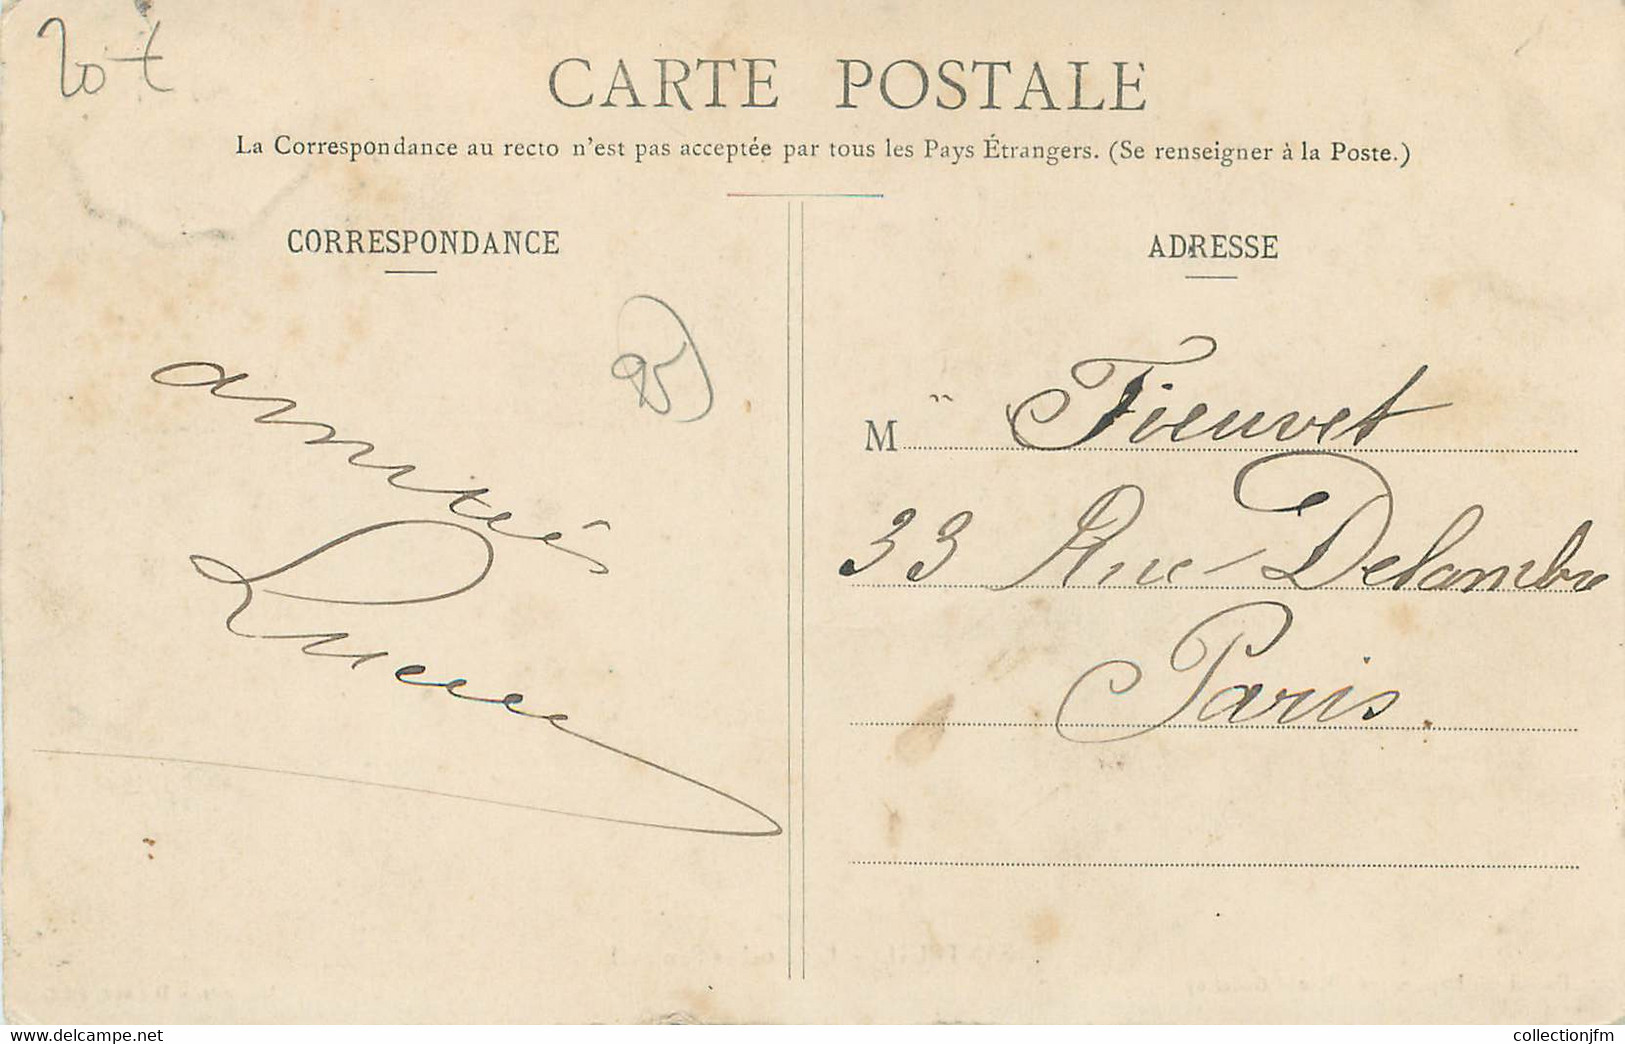 CARTE POSTALE
La Correspondance au recto n'est pas acceptée par tous les Pays Étrangers. (Se renseigner à la Poste.)
CORRESPONDANCE
95
amitiés
ADRESSE
M Fieuvet
33 Rue Delambre
Paris
collectionjfm